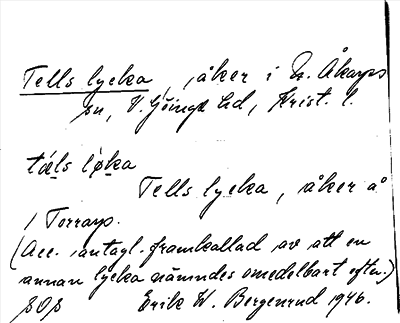 Tells lycka, åker i N. Åkarps
sn, V. Göinge hd, Krist. l.
tǽls løka
Tells lycka, åker å
1 Torrarp.
(Acc. antagl. framkallad av att en
annan lycka nämndes omedelbart efter.)
Erik W. Bergenrud 1946.